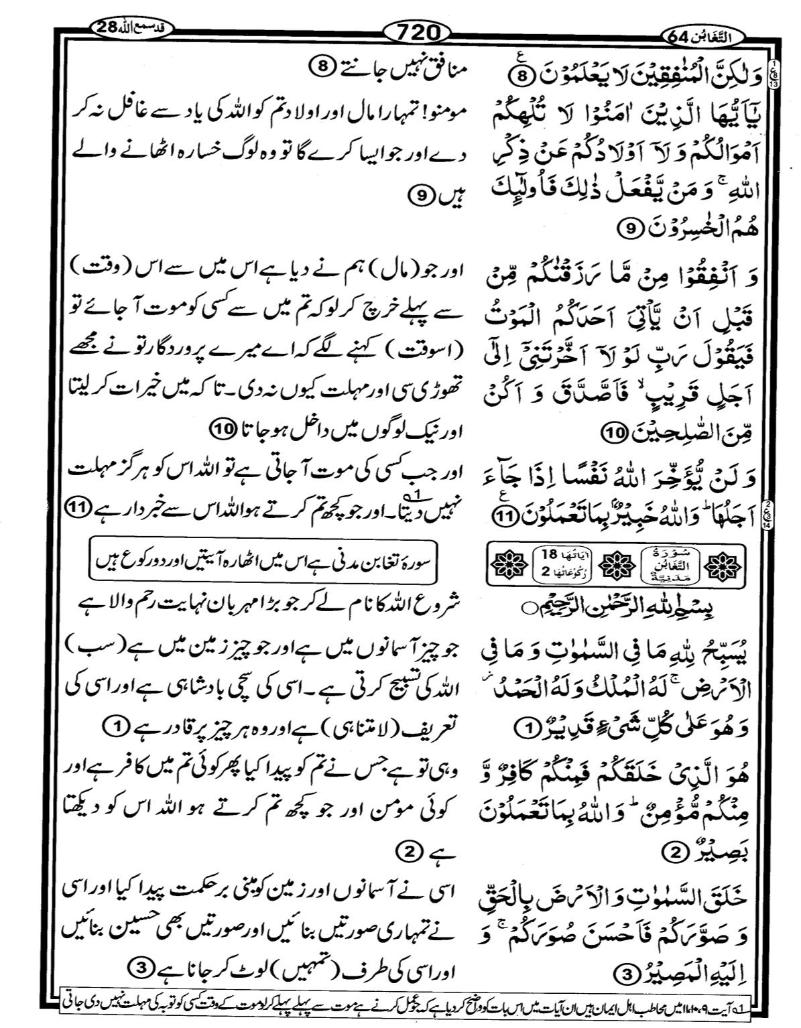 التَّغَابُن 64
720
قد سمع الله 28
وَلٰكِنَّ الْمُنٰفِقِيْنَ لَا يَعْلَمُوْنَ ⑧
يٰٓاَيُّهَا الَّذِيْنَ اٰمَنُوْا لَا تُلْهِكُمْ
اَمْوَالُكُمْ وَلَآ اَوْلَادُكُمْ عَنْ ذِكْرِ
اللهِ ۚ وَمَنْ يَّفْعَلْ ذٰلِكَ فَاُولٰٓئِكَ
هُمُ الْخٰسِرُوْنَ ⑨
وَ اَنْفِقُوْا مِنْ مَّا رَزَقْنٰكُمْ مِّنْ
قَبْلِ اَنْ يَّاْتِيَ اَحَدَكُمُ الْمَوْتُ
فَيَقُوْلَ رَبِّ لَوْ لَآ اَخَّرْتَنِيْٓ اِلٰٓى
اَجَلٍ قَرِيْبٍ ۙ فَاَصَّدَّقَ وَ اَكُنْ
مِّنَ الصّٰلِحِيْنَ ⑩
وَ لَنْ يُّؤَخِّرَ اللهُ نَفْسًا اِذَا جَآءَ
اَجَلُهَا ۗ وَاللهُ خَبِيْرٌۢ بِمَا تَعْمَلُوْنَ ⑪
سُوْرَةُ التَّغَابُنِ مَدَنِيَّةٌ
اٰيَاتُهَا 18
رُكُوْعَاتُهَا 2
بِسْمِ اللهِ الرَّحْمٰنِ الرَّحِيْمِ ○
يُسَبِّحُ لِلّٰهِ مَا فِي السَّمٰوٰتِ وَ مَا فِي
الْاَرْضِ ۚ لَهُ الْمُلْكُ وَلَهُ الْحَمْدُ ۡ
وَهُوَ عَلٰى كُلِّ شَيْءٍ قَدِيْرٌ ①
هُوَ الَّذِيْ خَلَقَكُمْ فَمِنْكُمْ كَافِرٌ وَّ
مِنْكُمْ مُّؤْمِنٌ ۗ وَاللهُ بِمَا تَعْمَلُوْنَ
بَصِيْرٌ ②
خَلَقَ السَّمٰوٰتِ وَ الْاَرْضَ بِالْحَقِّ
وَ صَوَّرَكُمْ فَاَحْسَنَ صُوَرَكُمْ ۚ وَ
اِلَيْهِ الْمَصِيْرُ ③
منافق نہیں جانتے ⑧
مومنو! تمہارا مال اور اولاد تم کو اللہ کی یاد سے غافل نہ کر
دے اور جو ایسا کرے گا تو وہ لوگ خسارہ اٹھانے والے
ہیں ⑨
اور جو (مال) ہم نے دیا ہے اس میں سے اس (وقت)
سے پہلے خرچ کر لو کہ تم میں سے کسی کو موت آ جائے تو
(اسوقت) کہنے لگے کہ اے میرے پروردگار تو نے مجھے
تھوڑی سی اور مہلت کیوں نہ دی۔ تا کہ میں خیرات کر لیتا
اور نیک لوگوں میں داخل ہو جاتا ⑩
اور جب کسی کی موت آ جاتی ہے تو اللہ اس کو ہرگز مہلت
نہیں دیتا۔ 1 اور جو کچھ تم کرتے ہو اللہ اس سے خبردار ہے ⑪
سورۂ تغابن مدنی ہے اس میں اٹھارہ آیتیں اور دو رکوع ہیں
شروع اللہ کا نام لے کر جو بڑا مہربان نہایت رحم والا ہے
جو چیز آسمانوں میں ہے اور جو چیز زمین میں ہے (سب)
اللہ کی تسبیح کرتی ہے۔ اسی کی سچی بادشاہی ہے اور اسی کی
تعریف (لامتناہی) ہے اور وہ ہر چیز پر قادر ہے ①
وہی تو ہے جس نے تم کو پیدا کیا پھر کوئی تم میں کافر ہے اور
کوئی مؤمن اور جو کچھ تم کرتے ہو اللہ اس کو دیکھتا
ہے ②
اسی نے آسمانوں اور زمین کو مبنی بر حکمت پیدا کیا اور اسی
نے تمہاری صورتیں بنائیں اور صورتیں بھی حسین بنائیں
اور اسی کی طرف (تمہیں) لوٹ کر جانا ہے ③
1ہ آیت ۱۱،۱۰،۹ میں مخاطب اہل ایمان ہیں ان آیات میں اس بات کو واضح کر دیا ہے کہ جو عمل کرنے ہے موت سے پہلے پہلے کر لو موت کے وقت کسی کو توبہ کی مہلت نہیں دی جاتی